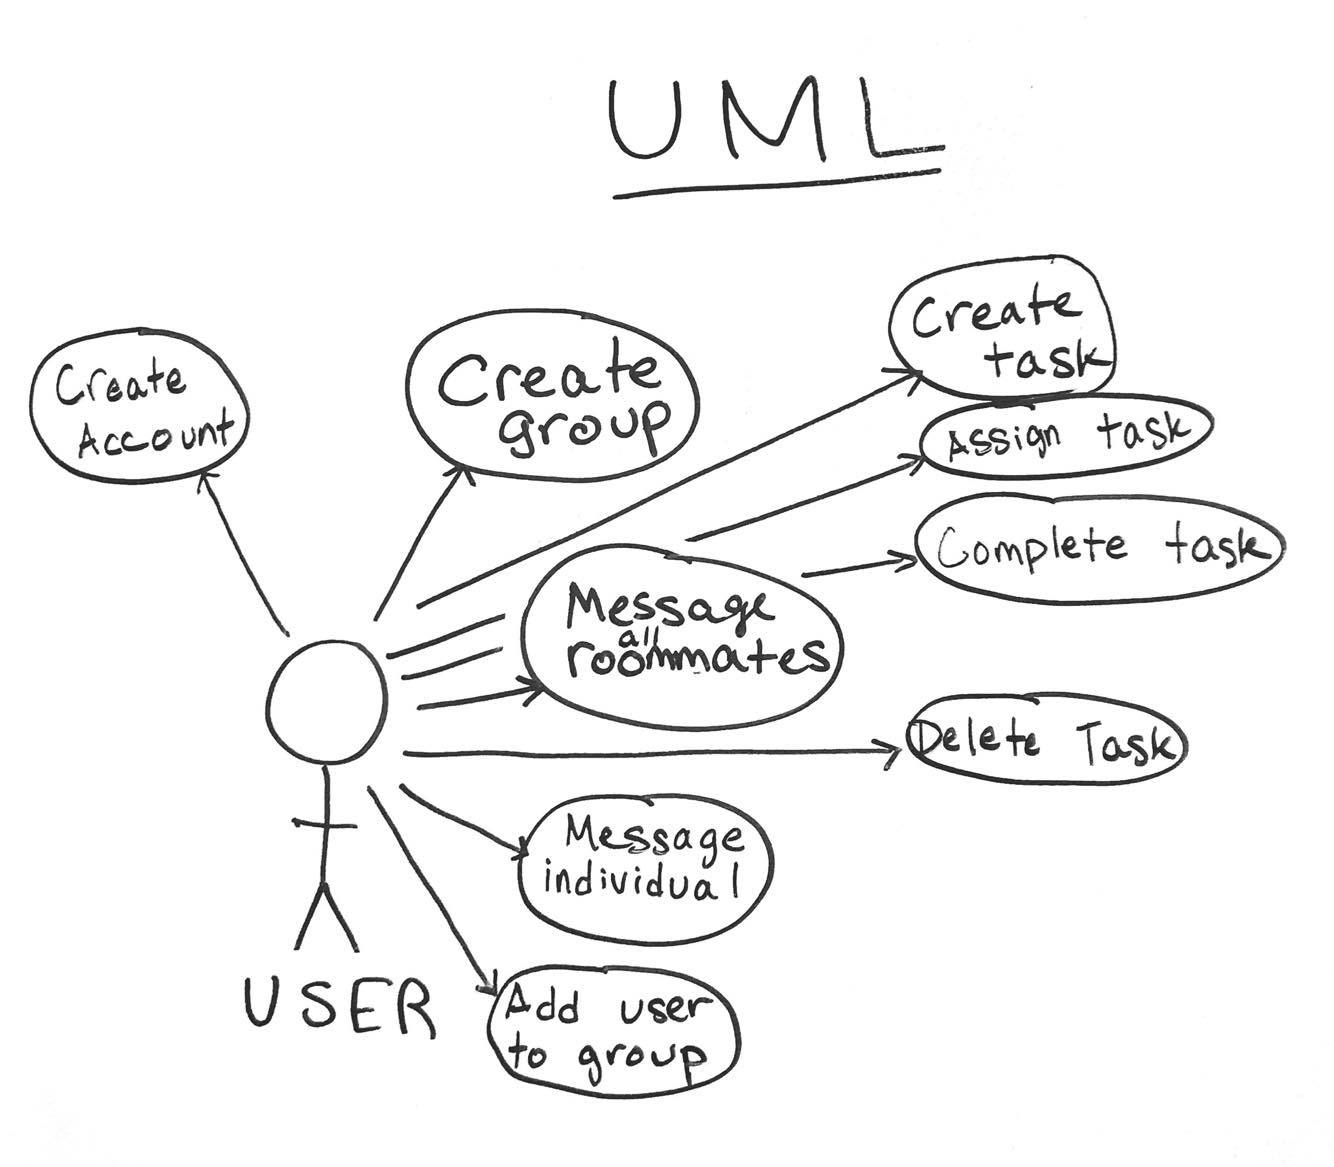 UML
Create
Account
Create
group
Create
task
Assign task
Complete task
Message
all
roommates
Delete Task
Message
individual
Add user
to group
USER